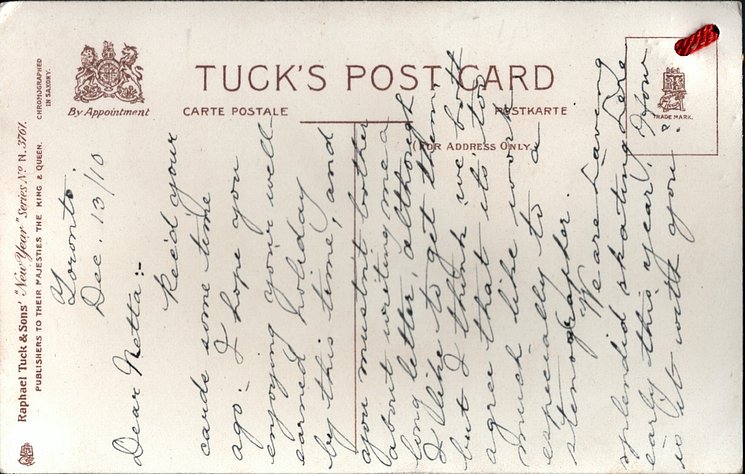 TUCK'S POST CARD
CARTE POSTALE
POSTKARTE
(FOR ADDRESS ONLY.)
By Appointment
TRADE MARK.
CHROMOGRAPHED
IN SAXONY.
Raphael Tuck & Sons' "New Year" Series No. N. 3761.
PUBLISHERS TO THEIR MAJESTIES THE KING & QUEEN.
Toronto.
Dec. 13/10
Dear Netta:-
Rec'd your
cards some time
ago. I hope you
enjoying your well
earned holiday
by this time, and
you mustn't bother
about writing me a
long letter, although
I like to get them,
but I think we both
agree that its too
much like work
especially to a
stenographer.
We are having
splendid skating here
early this year. How
is it with you?